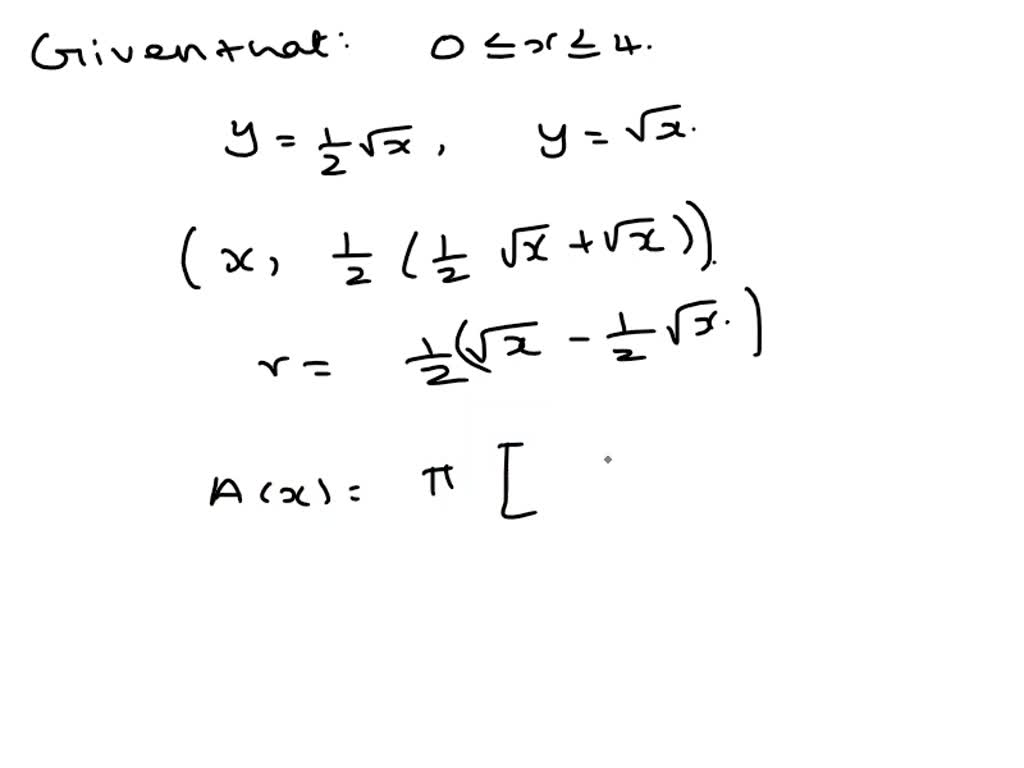 Given that: 0 ≤ x ≤ 4.
y = 1/2 √x, y = √x.
(x, 1/2 (1/2 √x + √x)).
r = 1/2 (√x - 1/2 √x.)
A(x) = π [